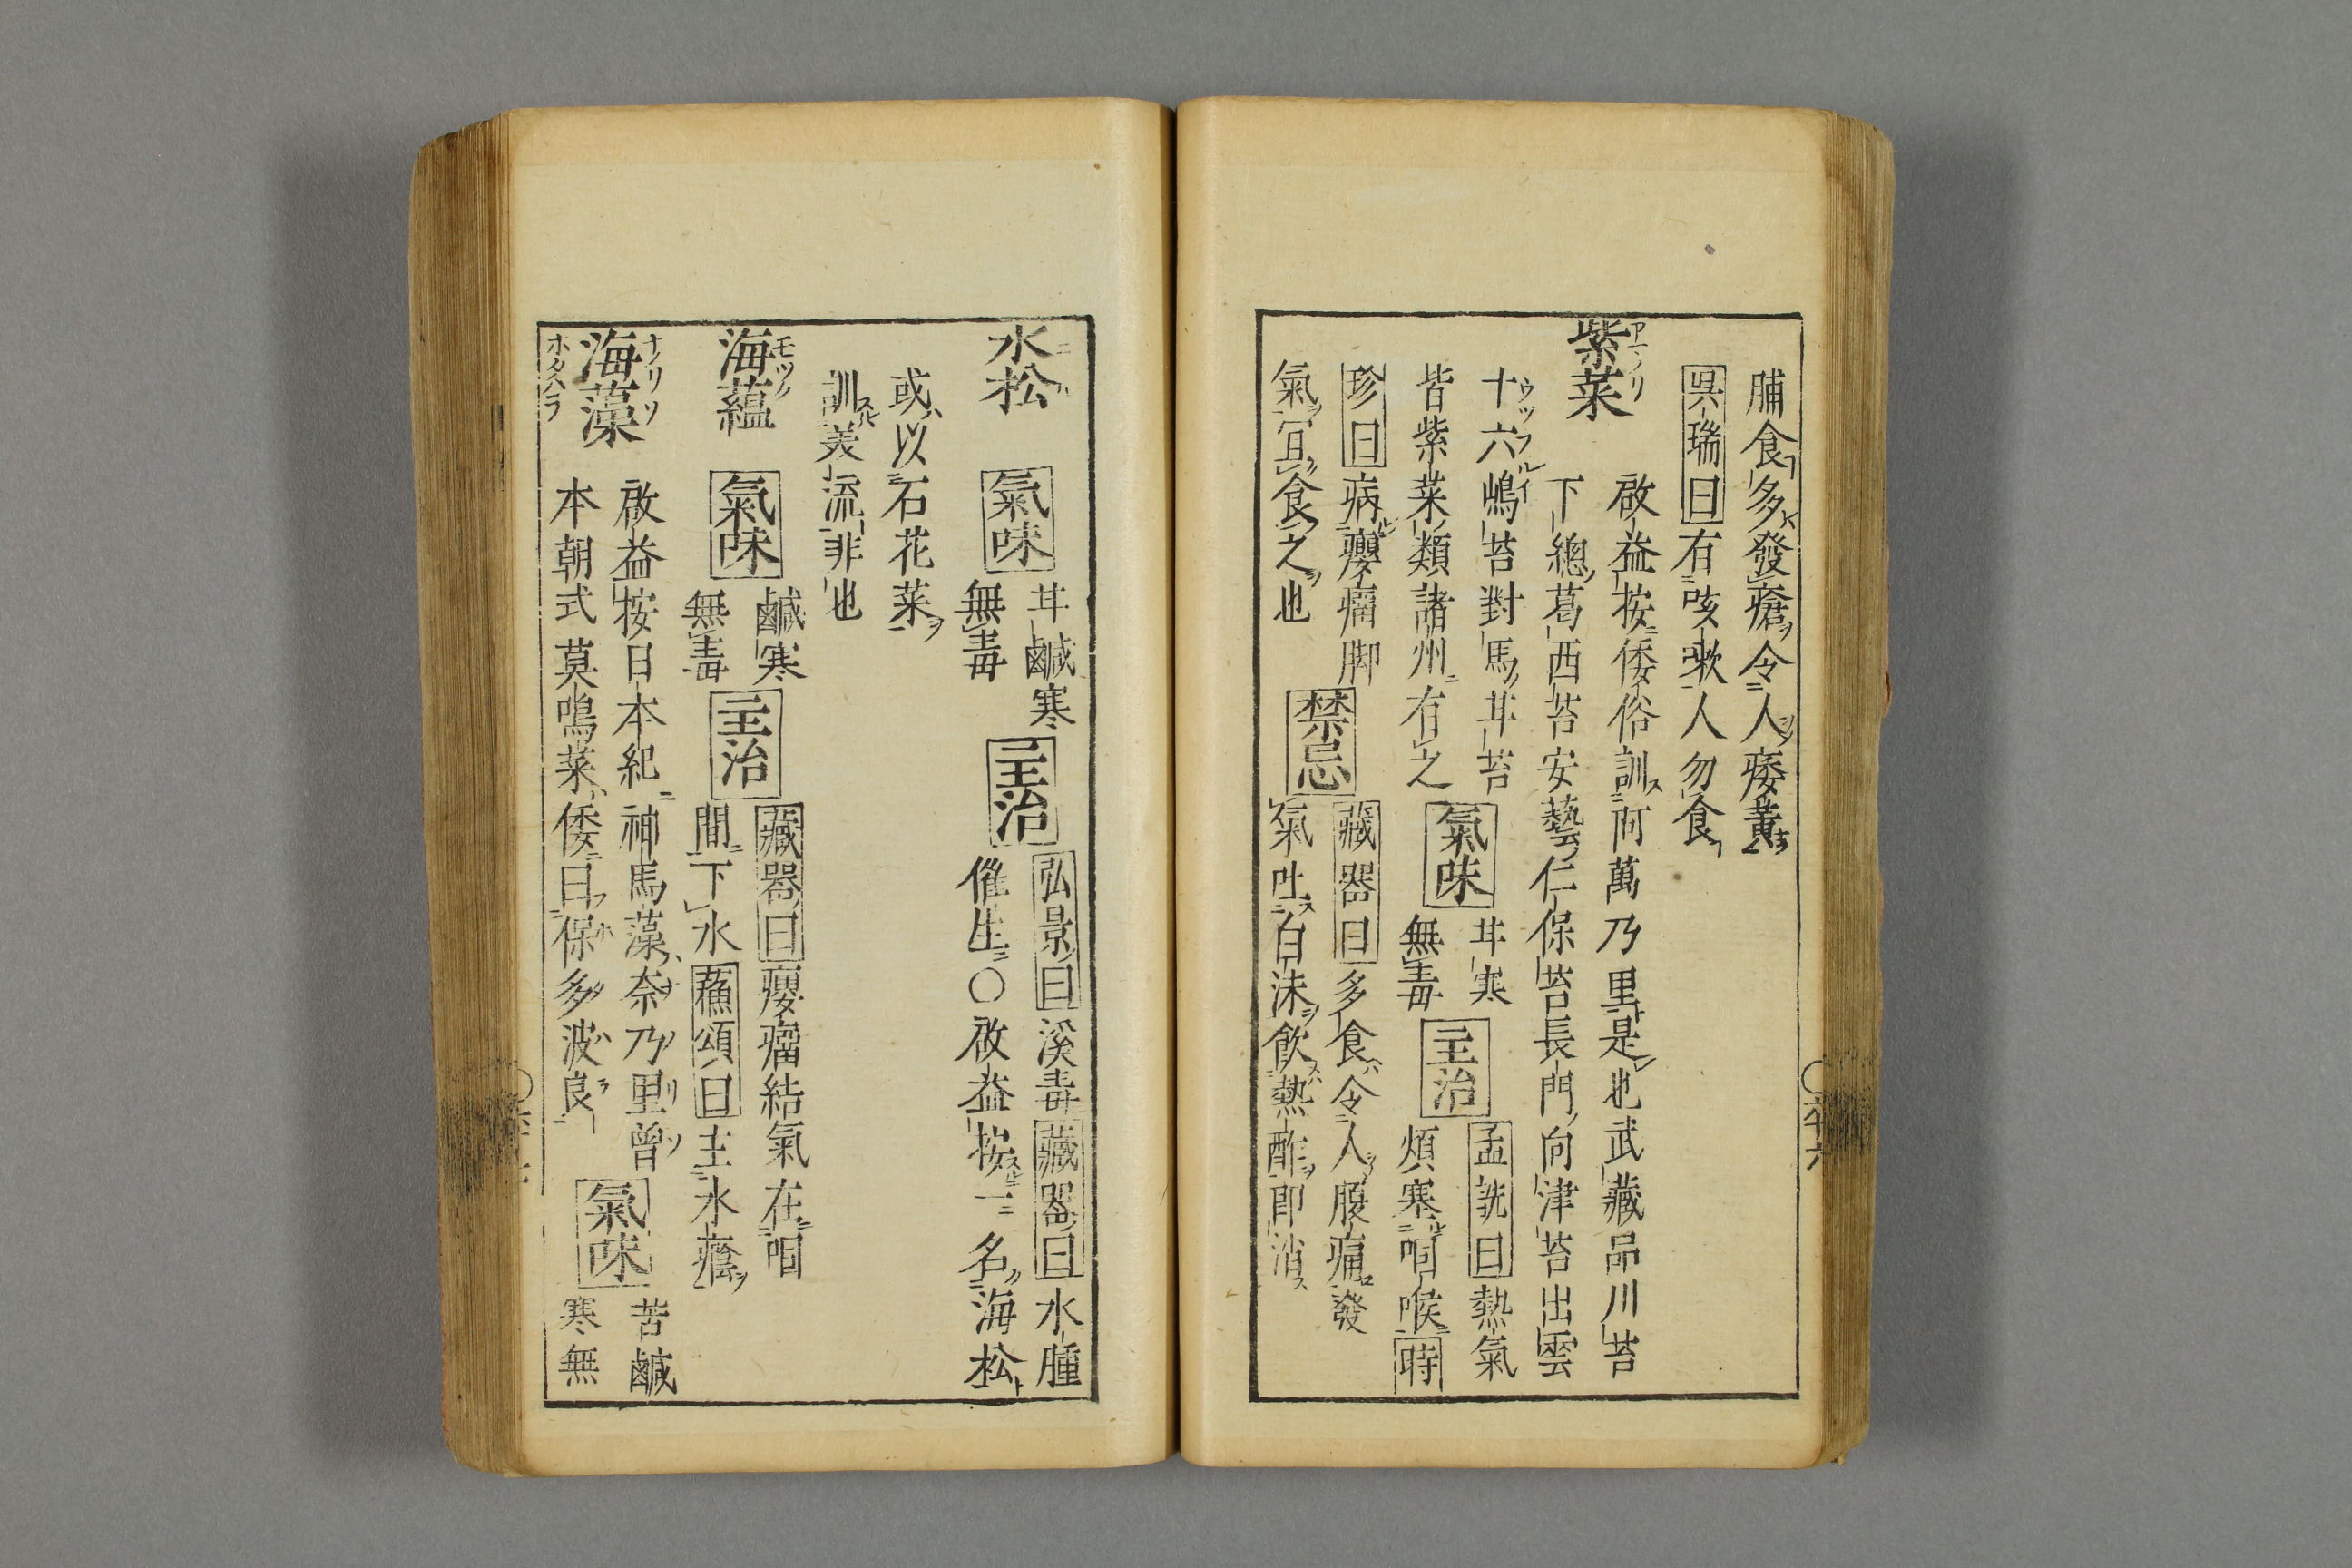 脯食多發瘡令人痿黃
呉瑞曰有咳嗽人勿食
紫菜
啟益按倭俗訓阿萬乃里是也武藏品川苔
下總葛西苔安藝仁保苔長門向津苔出雲
十六嶋苔對馬甘苔
皆紫菜類諸州有之
氣味
甘寒
無毒
主治
孟詵曰熱氣
煩塞咽喉時
珍曰病癭瘤脚
氣宜食之也
禁忌
藏器曰多食令人腹痛發
氣吐白沫飲熱酢即消
水松
氣味
甘鹹寒
無毒
主治
弘景曰溪毒藏器曰水腫
催生○啟益按一名海松
或以石花菜
訓美流非也
海蘊
モツク
氣味
鹹寒
無毒
主治
藏器曰癭瘤結氣在咽
間下水蘇頌曰主水癊
海藻
ナノリソ
ホタハラ
啟益按日本紀神馬藻奈乃里曾
本朝式莫鳴菜倭曰保多波良
氣味
苦鹹
寒無